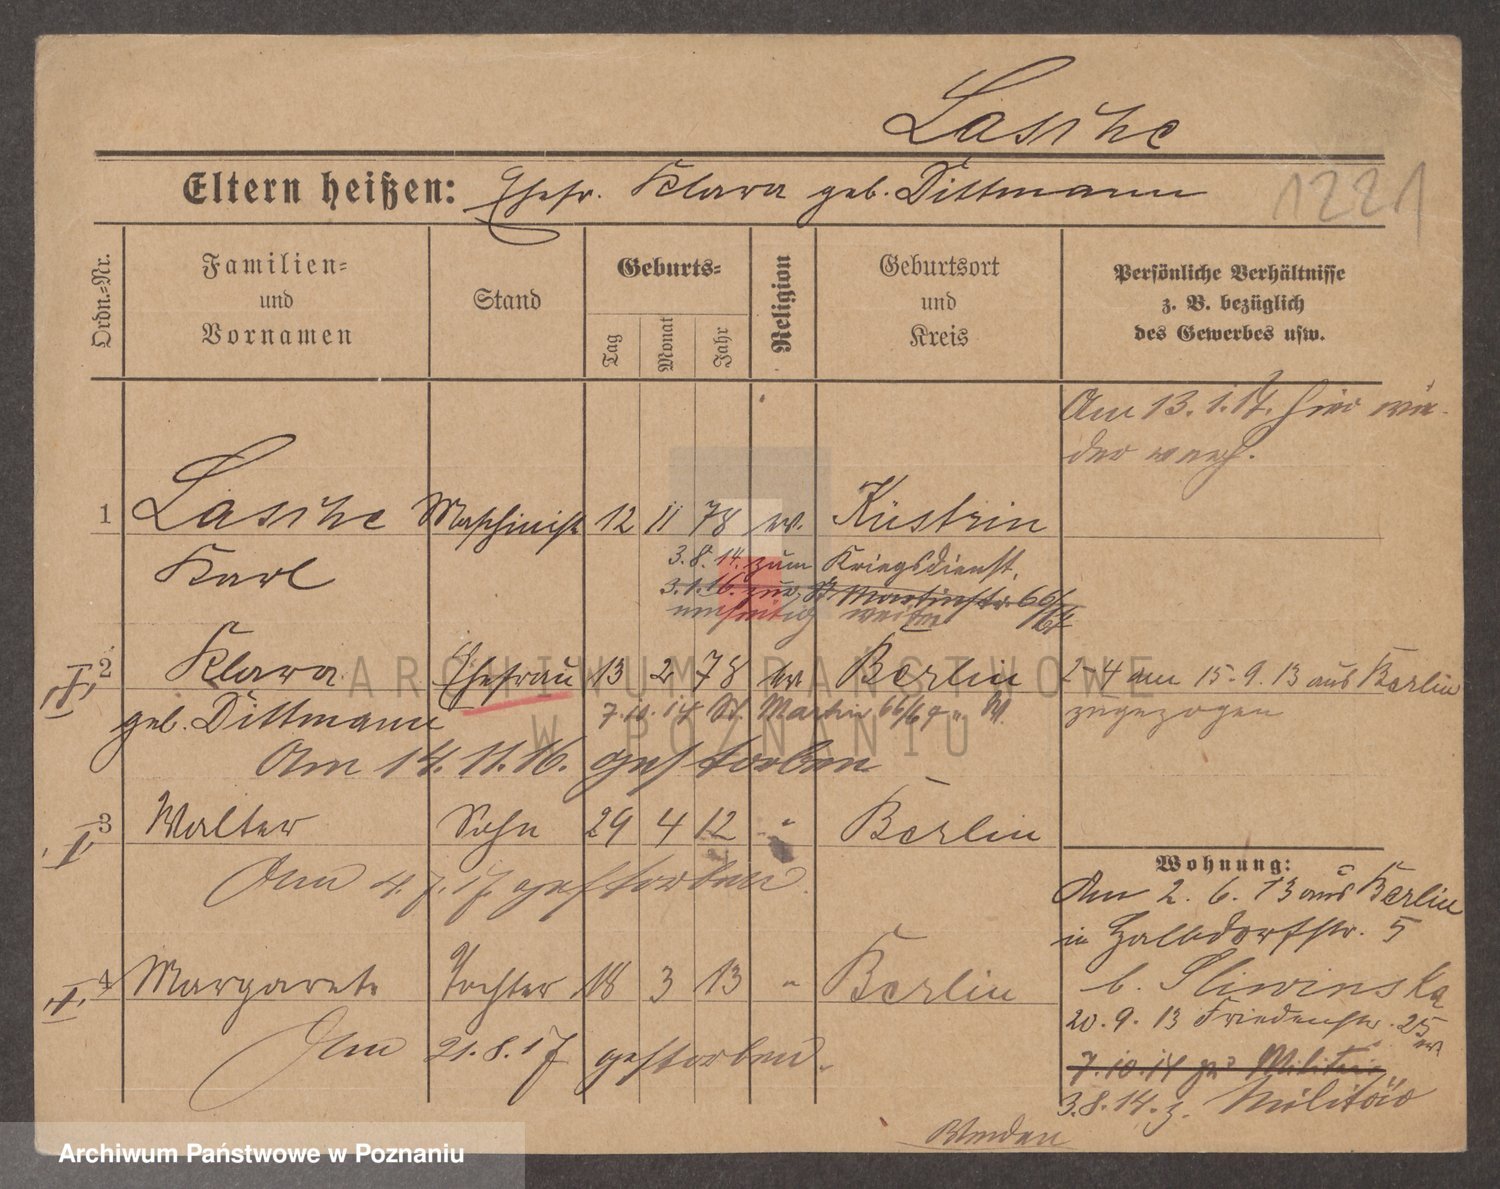 Laschke
Eltern heißen: Ehefr. Klara geb. Dittmann
1221
Ordn.-Nr.
Familien-
und
Vornamen
Stand
Geburts-
Tag
Monat
Jahr
Religion
Geburtsort
und
Kreis
Persönliche Verhältnisse
z. B. bezüglich
des Gewerbes usw.
Am 13. 1. 17. hier wie-
der
1 Laschke Maschinist 12 11 78 ev. Küstrin
Karl
3.8.14. zum Kriegsdienst.
3.1.16. zur. St. Martinstr. 66/67
2 Klara Ehefrau 13 2 78 ev Berlin
geb. Dittmann
7.10.14 St. Martin 66/67
2-4 am 15.9.13 aus Berlin
zugezogen
Am 14.11.16. gestorben
3 Walter Sohn 29 4 12 " Berlin
Am 4.7.17. gestorben.
4 Margarete Tochter 18 3 13 " Berlin
Am 21.8.17 gestorben.
Wohnung:
Am 2. 6. 13 aus Berlin
in Halbdorfstr. 5
b. Sliwinska
20.9.13 Friedenstr. 25
7.10.14 zu Militär
3.8.14. z. Militär
Wenden
ARCHIWUM PAŃSTWOWE
W POZNANIU
Archiwum Państwowe w Poznaniu